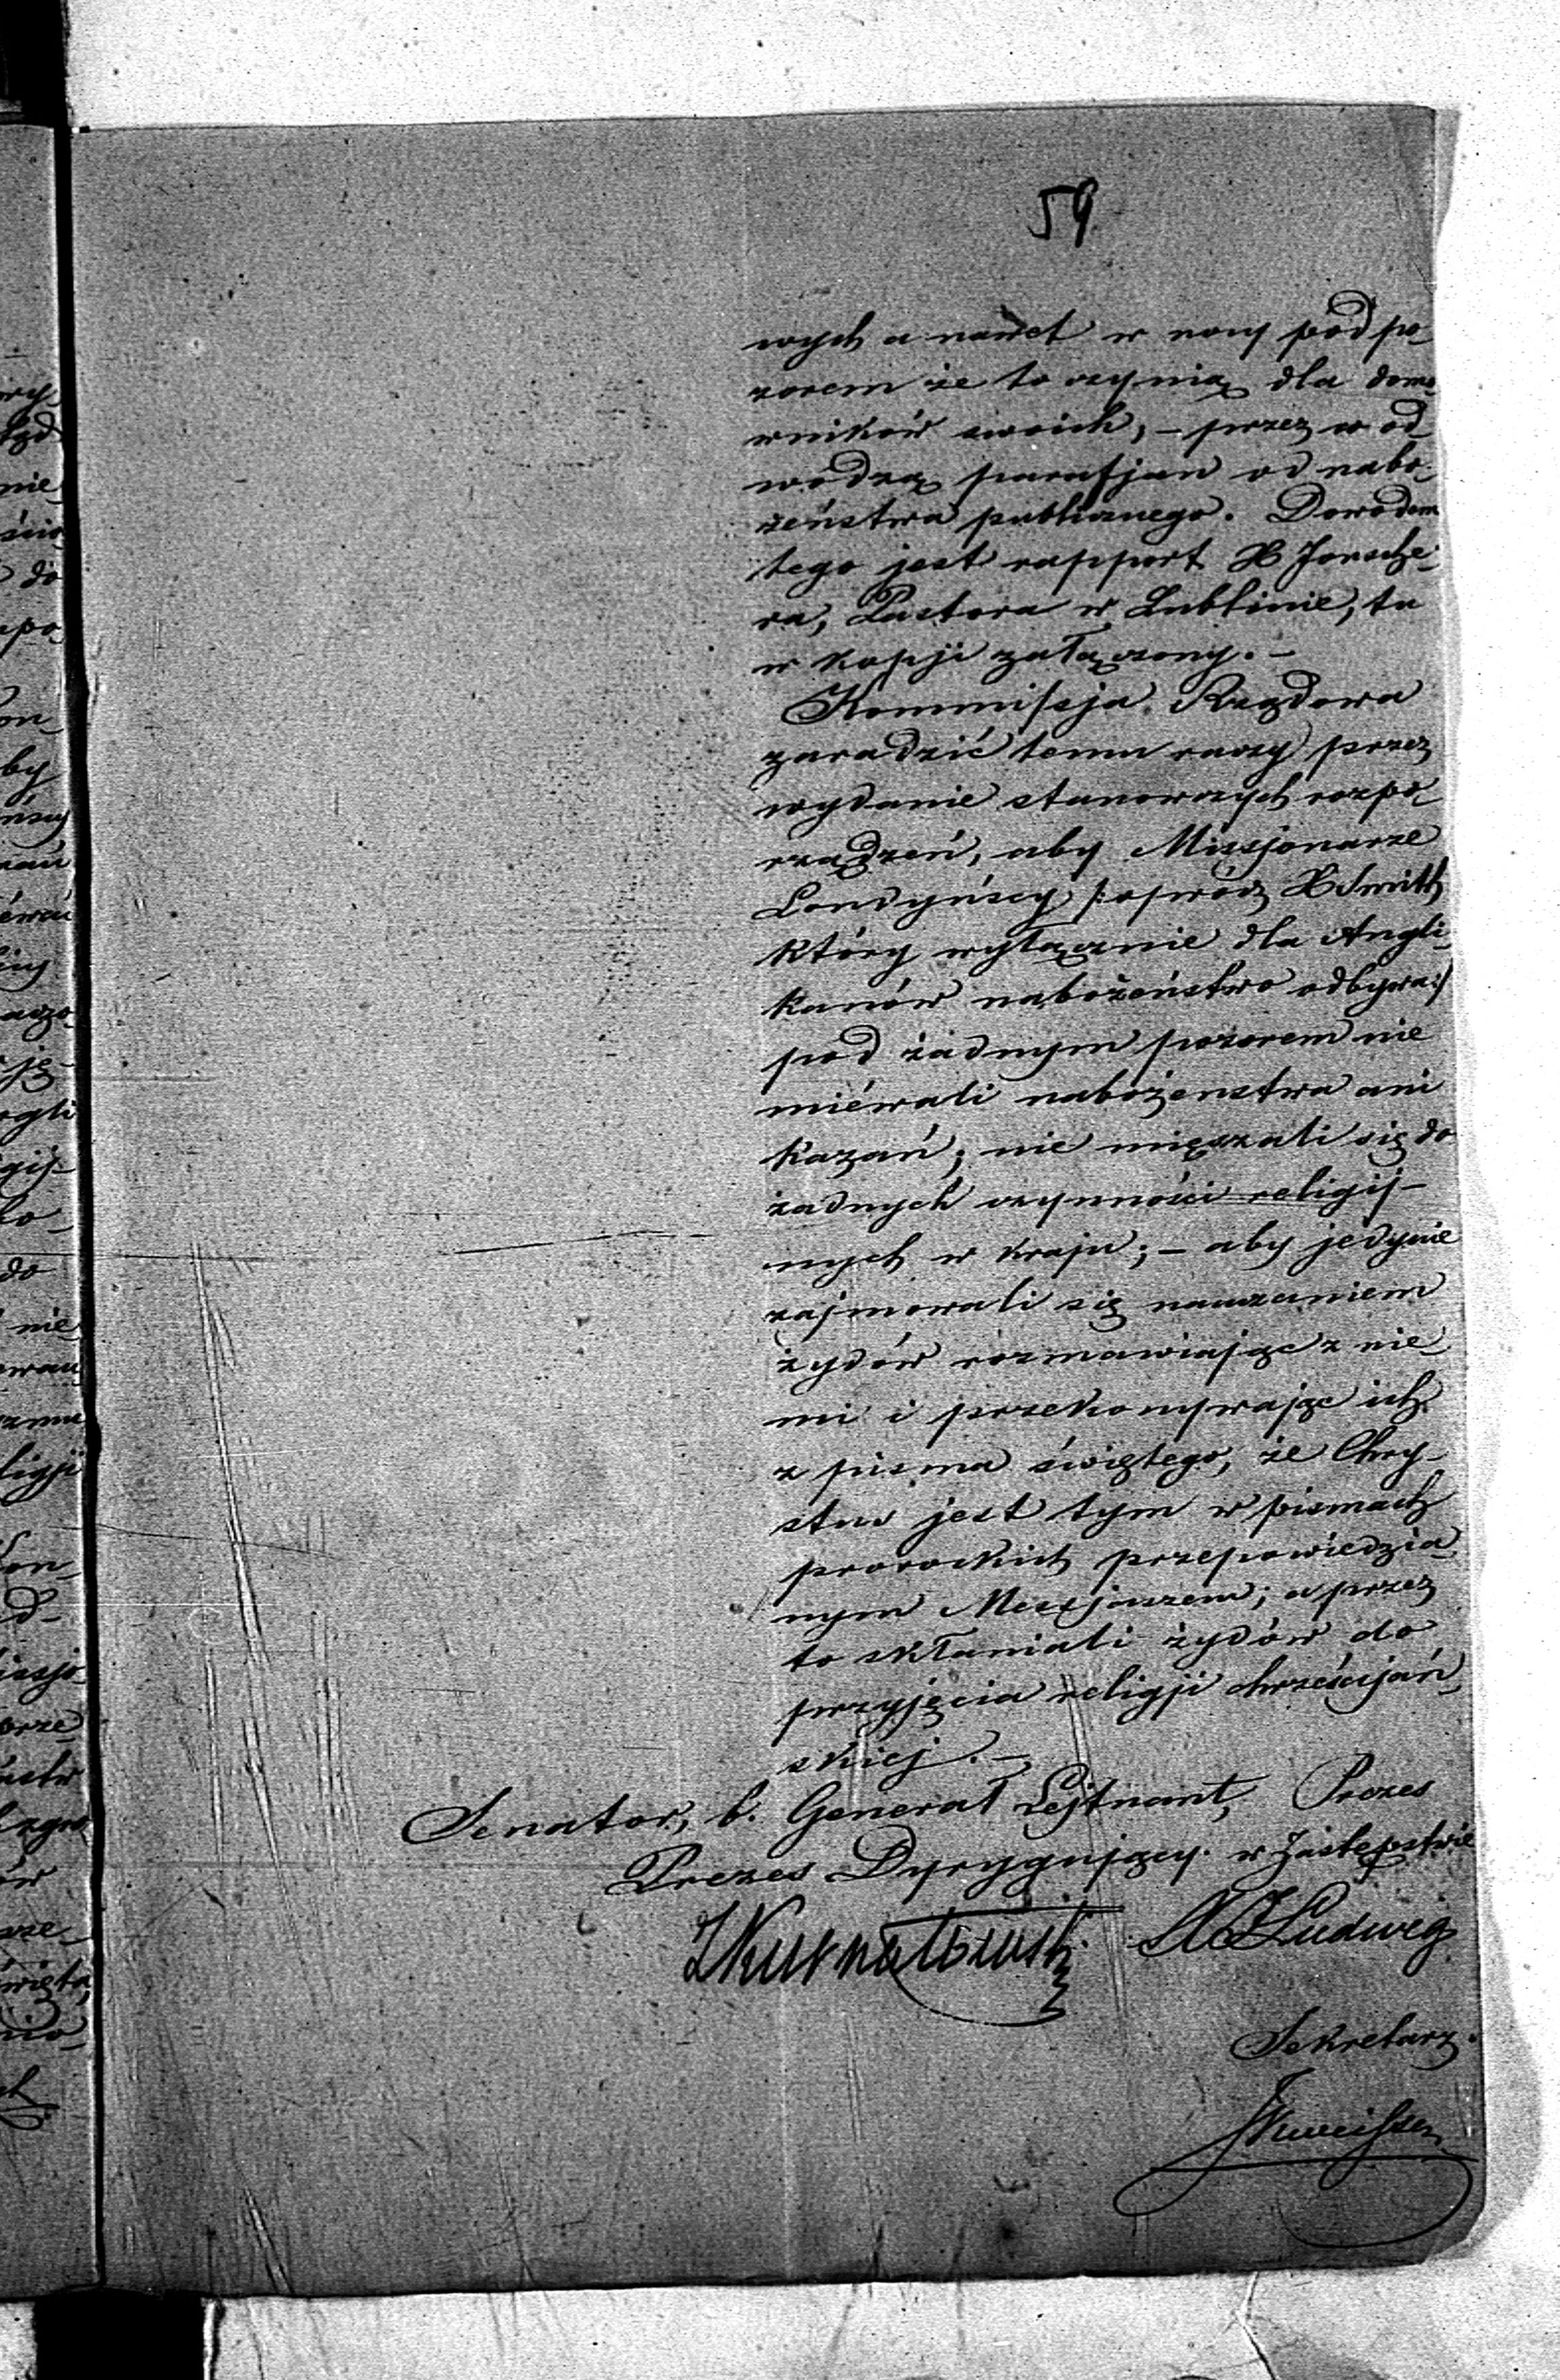 59
wych a nawet w nocy pod po-
zorem że to czynią dla domo-
wników swoich, – przez co od-
wodzą parafjan od nabo-
żeństwa publicznego. Dowodem
tego jest rapport X Jonsche-
ra, Pastora w Lublinie, tu
w kopji załączony. –
Kommissja Rządowa
zaradzić temu raczy przez
wydanie stanowczych rozpo-
rządzeń, aby Missjonarze
Londyńscy /: oprócz X Smith
który wyłącznie dla Angli-
kanów nabożeństwo odbywa :/
pod żadnym pozorem nie
miéwali nabożenstwa ani
kazań; nie mięszali się do
żadnych czynności religij-
nych w kraju; – aby jedynie
zajmowali się nauczaniem
żydów rozmawiając z nie-
mi i przekonywając ich
z pisma świętego, że Chry-
stus jest tym w pismach
prorockich przepowiedzia-
nym Messjaszem; a przez
to skłaniali żydów do
przyjęcia religji chrześcijań-
skiej. –
Senator, b. Generał Lejtnant, Prezes
Prezes Dyrygujący. w Zastępstwie
ZKurnatowski XJLudwig
Sekretarz.